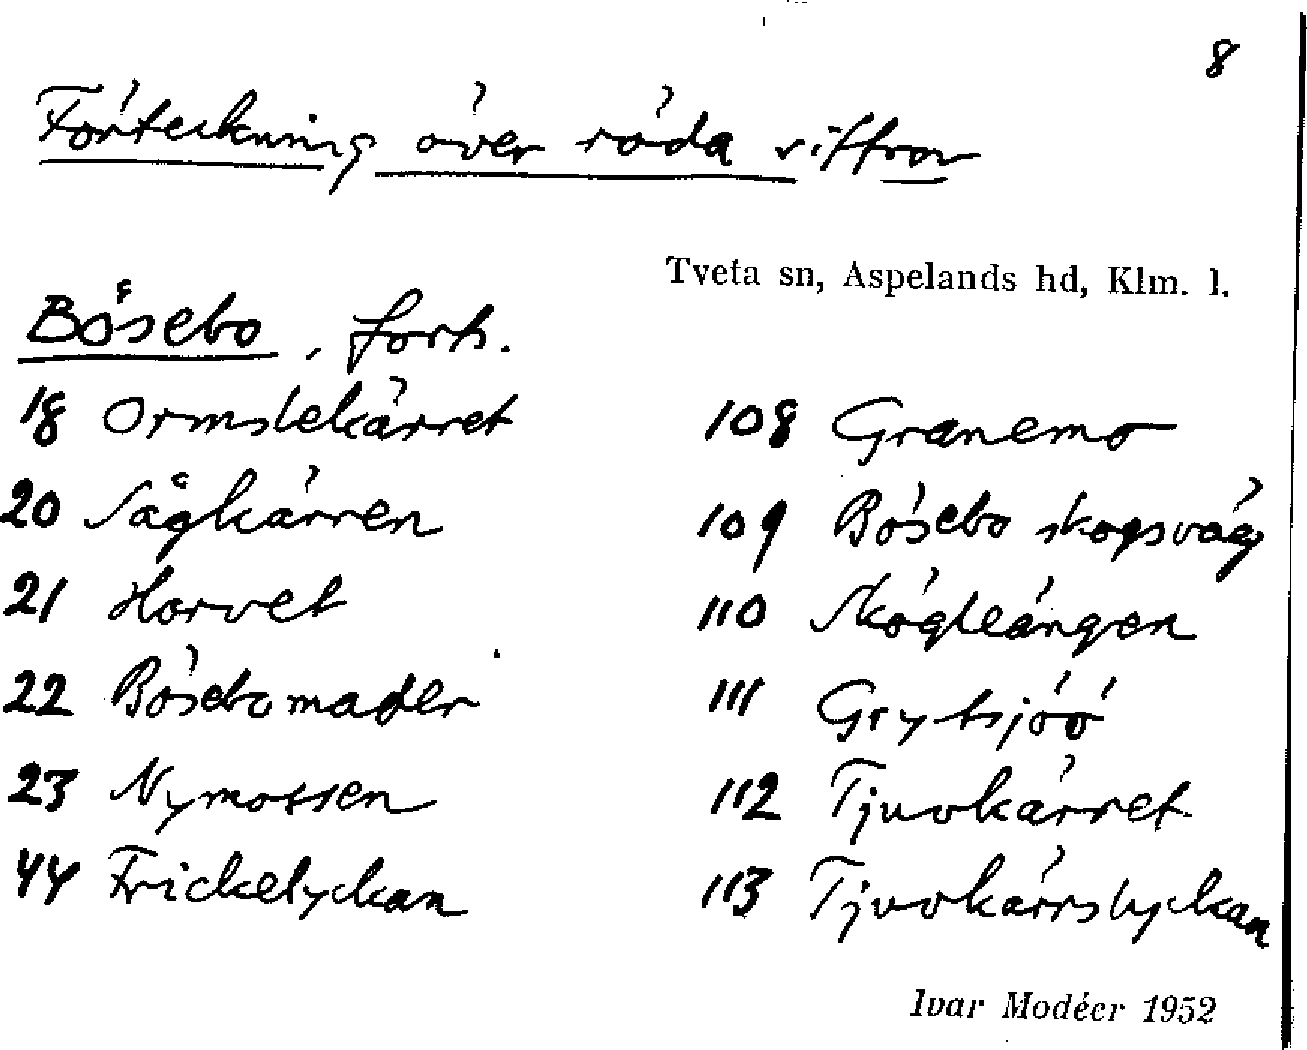 8
Förteckning över röda siffror
Tveta sn, Aspelands hd, Klm. l.
Bösebo, forts.
18 Ormslekärret
20 Sågkärren
21 Horvet
22 Bösebomader
23 Nymossen
44 Frickelyckan
108 Granemo
109 Bösebo skogsväg
110 Skögleängen
111 Grytsjöö
112 Tjuvkärret
113 Tjuvkärrslyckan
Ivar Modéer 1952